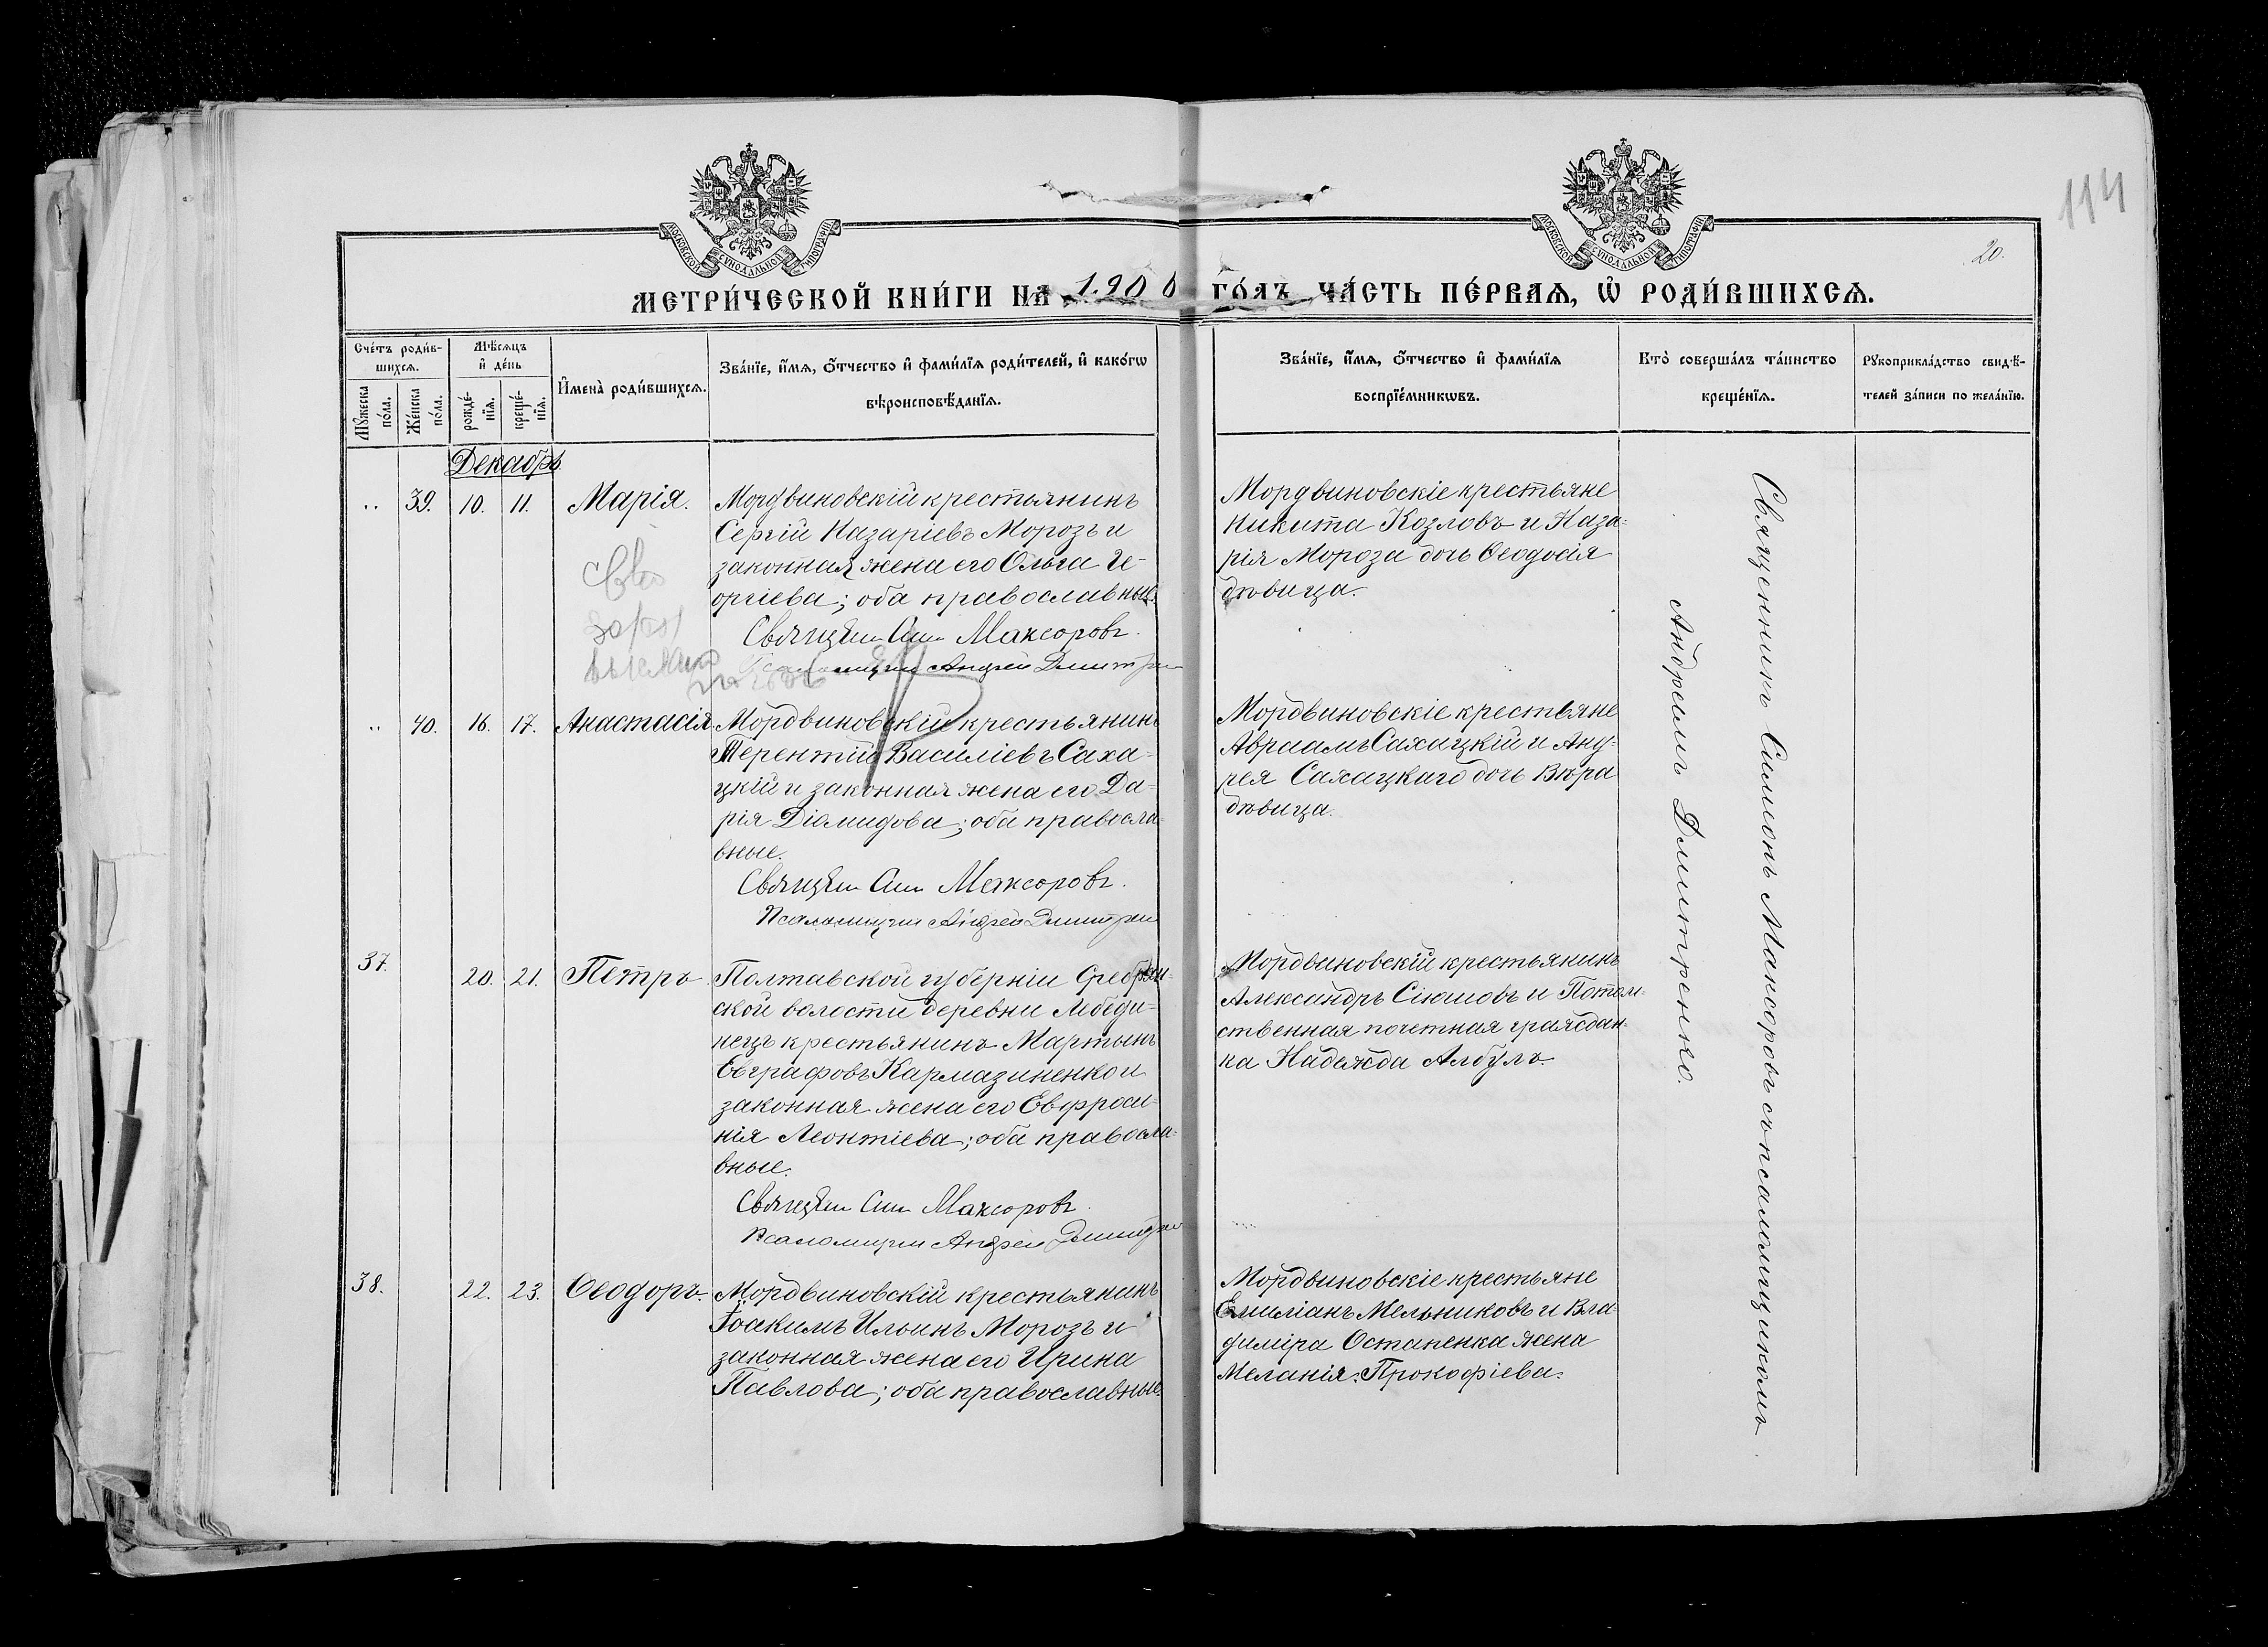 114
20.
МОСКОВСКОЙ СѴНОДАЛЬНОЙ ТИПОГРАФІИ
МОСКОВСКОЙ СѴНОДАЛЬНОЙ ТИПОГРАФІИ
МЕТРИ́ЧЕСКОЙ КНИ́ГИ НА 1900 ГО́ДЪ, ЧА́СТЬ ПЕ́РВАѦ, Ѡ РОДИ́ВШИХСѦ.
Сче́тъ роди́вшихсѧ.
Мꙋ́жеска по́ла.
Же́нска по́ла.
Мѣ́сѧцъ и҆ де́нь
рожде́нїѧ.
креще́нїѧ.
И҆мена̀ роди́вшихсѧ.
Зва́нїе, и҆́мѧ, ѻ҆́тчество и҆ фами́лїѧ роди́телей, и҆ како́гѡ
вѣроисповѣ́данїѧ.
Зва́нїе, и҆́мѧ, ѻ҆́тчество и҆ фами́лїѧ
воспрїе́мникѡвъ.
Кто̀ соверша́лъ та́инство
креще́нїѧ.
Рꙋкоприкла́дство свидѣ́-
телей за́писи по жела́нїю.
Декабрь
.. 39. 10. 11. Марія.
Мордвиновскій крестьянинъ
Сергій Назаріевъ Морозъ и
законная жена его Ольга Ге-
оргіева; оба православные.
Священ. Сим. Максоровъ.
Псаломщик Андрей Дмитрен
Мордвиновскіе крестьяне
Никита Козловъ и Наза-
рія Мороза дочь Ѳеодосія
дѣвица.
.. 40. 16. 17. Анастасія
Мордвиновскій крестьянинъ
Терентій Василіевъ Саха-
цкій и законная жена его Да-
рія Діомидова; оба правосла-
вные.
Священ. Сим. Максоровъ.
Псаломщик Андрей Дмитрен
Мордвиновскіе крестьяне
Авраамъ Сахацкій и Анд-
рея Сахацкаго дочь Вѣра
дѣвица.
37. 20. 21. Петръ
Полтавской губерніи Сребрян-
ской волости деревни Лебеди-
нецъ крестьянинъ Мартынъ
Евграфовъ Кармазиненко и
законная жена его Евфроси-
нія Леонтіева; оба правосла-
вные.
Священ. Сим. Максоровъ.
Псаломщик Андрей Дмитрен
Мордвиновскій крестьянинъ
Александръ Сіюшовъ и Потом-
ственная почетная граждан-
ка Надежда Албулъ.
38. 22. 23. Ѳеодоръ.
Мордвиновскій крестьянинъ
Іоакимъ Ильинъ Морозъ и
законная жена его Ирина
Павлова; оба православные.
Мордвиновскіе крестьяне
Емиліанъ Мельниковъ и Вла-
диміра Остапенка жена
Меланія Прокофіева.
Священникъ Симмонъ Максоровъ съ псаломщикомъ
Андреемъ Дмитренко.